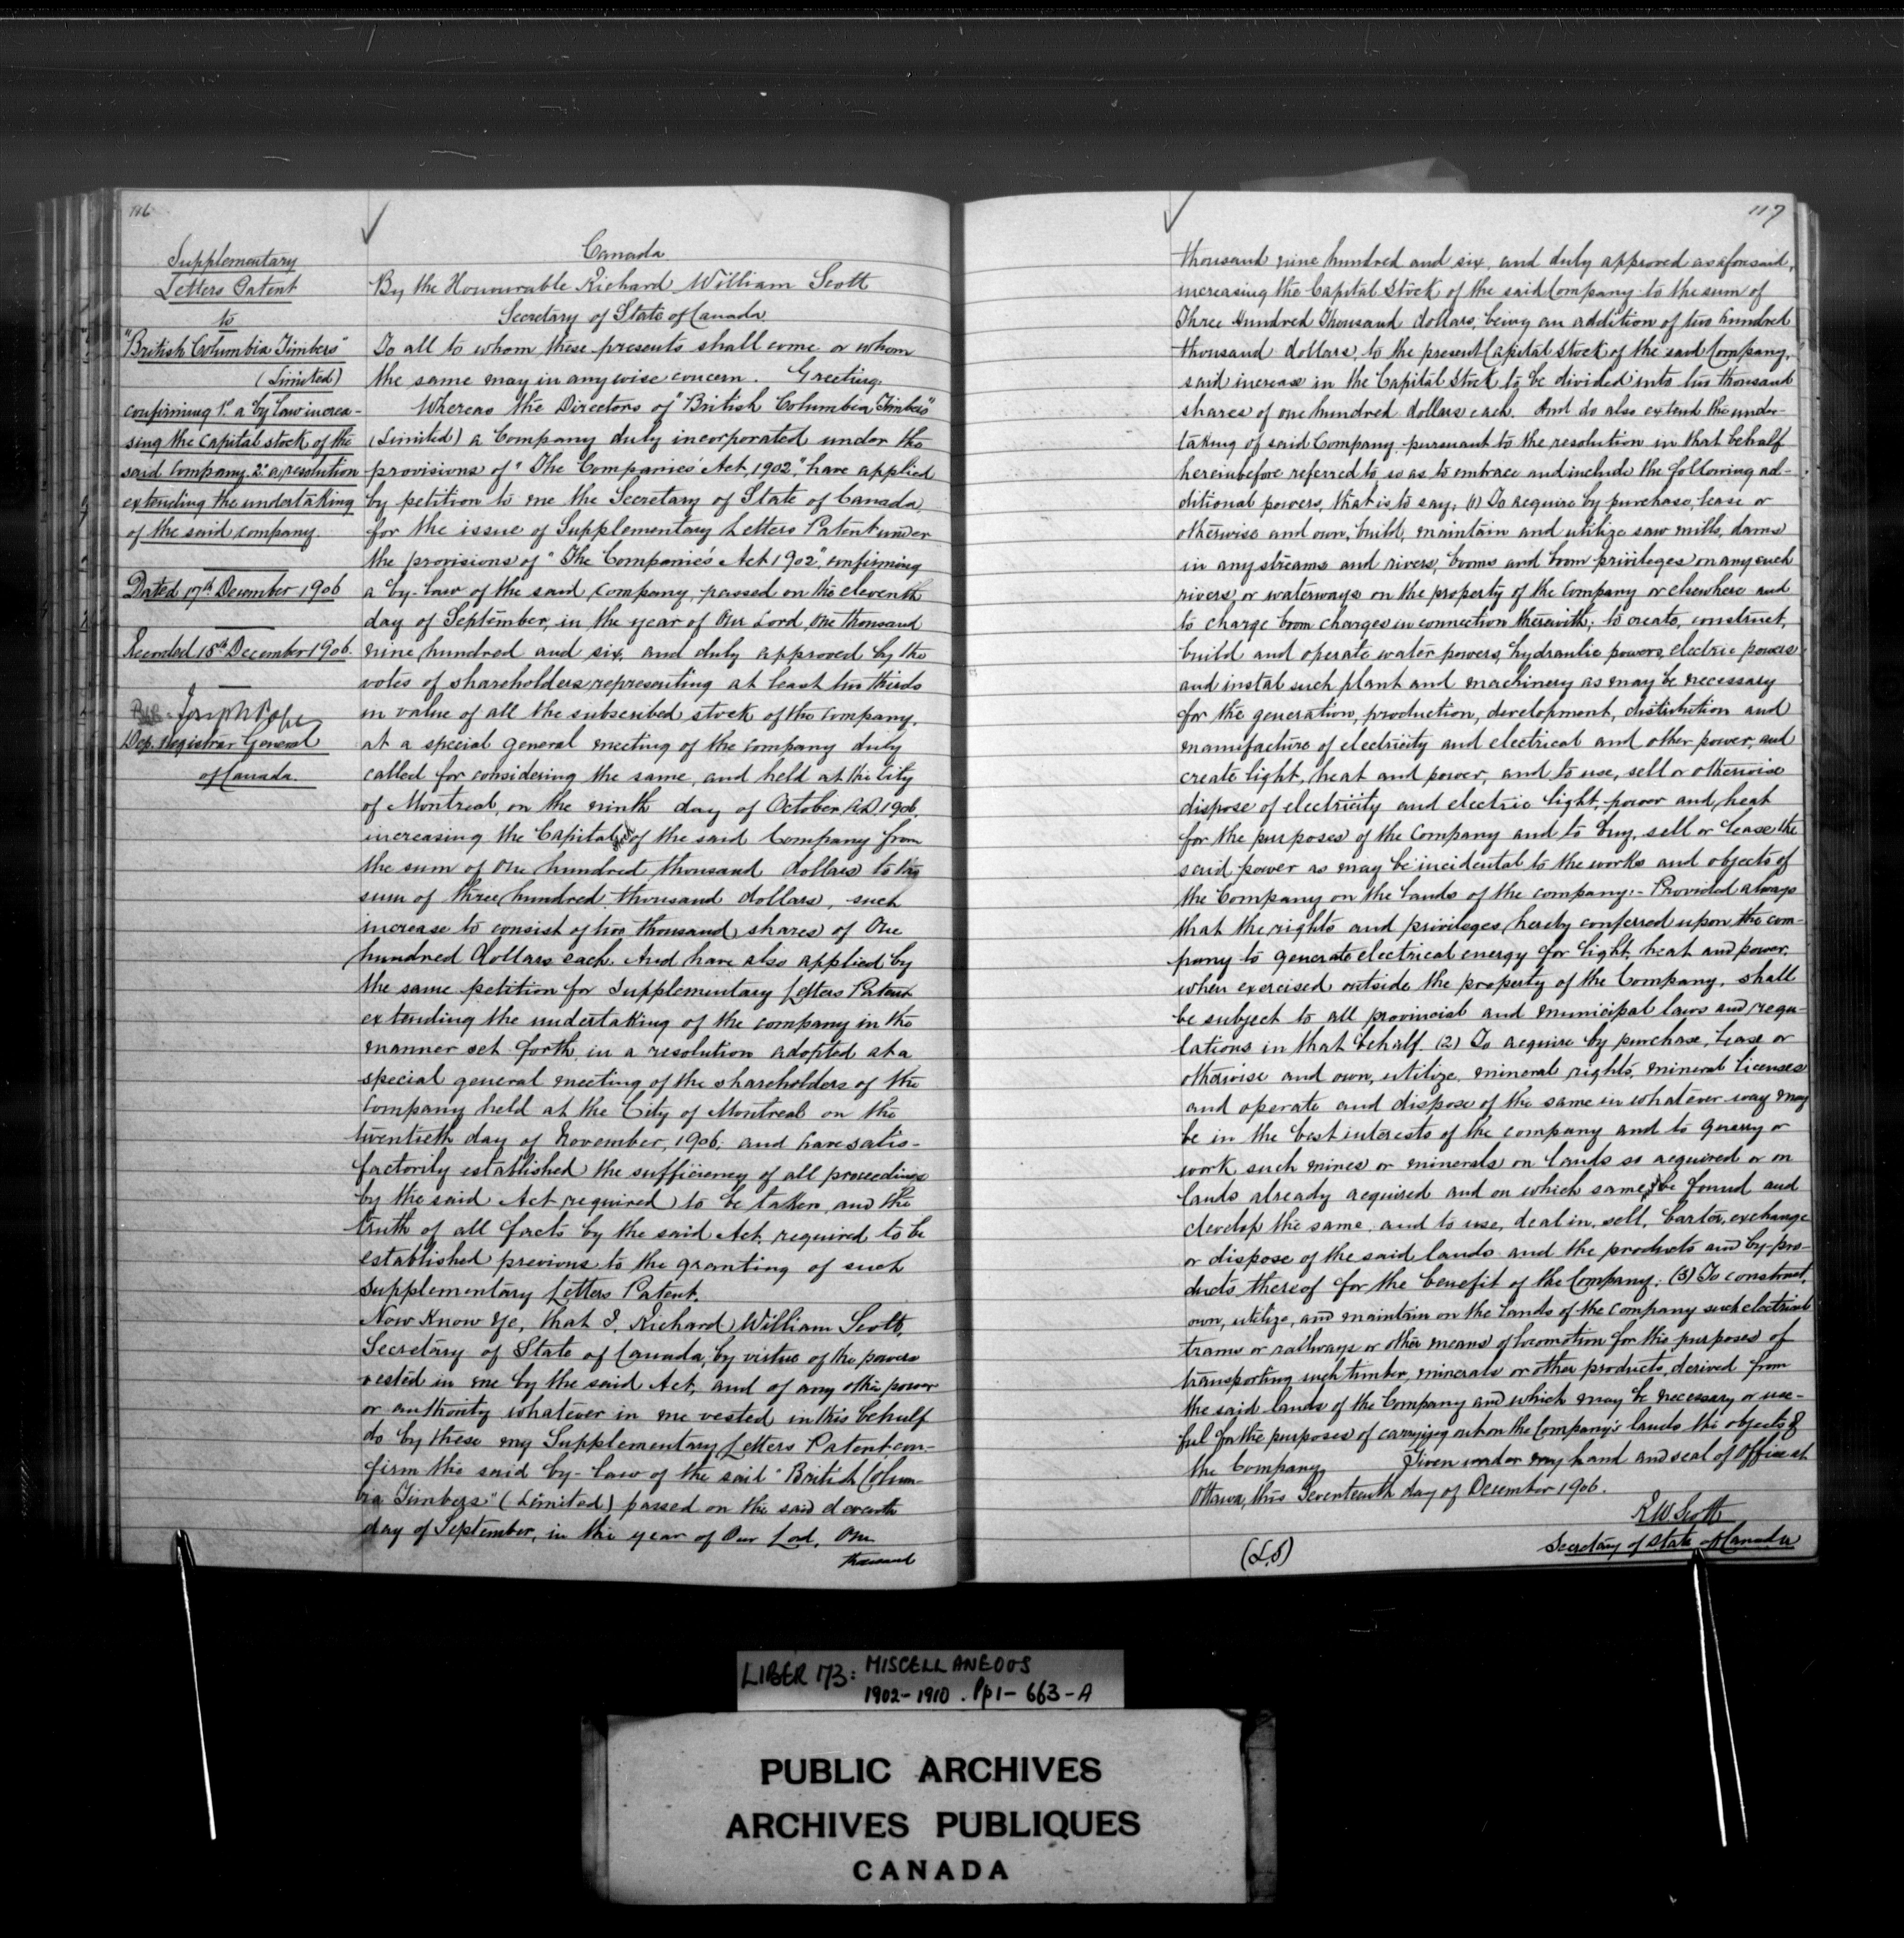 116
Supplementary
Letters Patent
to
"British Columbia Timbers"
(Limited)
confirming 1º a by law increa-
sing the capital stock of the
said Company. 2º a resolution
extending the undertaking
of the said company.
Dated 17th December 1906
Recorded 18th December 1906.
Joseph Pope
Dep. Registrar General
of Canada.
Canada
By the Honourable Richard William Scott
Secretary of State of Canada
To all to whom these presents shall come or whom
the same may in any wise concern. Greeting.
Whereas the Directors of "British Columbia Timbers"
(Limited) a Company duly incorporated under the
provisions of "The Companies' Act 1902," have applied
by petition to me the Secretary of State of Canada,
for the issue of Supplementary Letters Patent under
the provisions of "The Companie's Act 1902", confirming
a by-law of the said Company, passed on the eleventh
day of September, in the year of Our Lord, One thousand
nine hundred and six, and duly approved by the
votes of shareholders representing at least two thirds
in value of all the subscribed stock of the Company,
at a special general meeting of the company duly
called for considering the same, and held at the City
of Montreal, on the ninth day of October A.D. 1906,
increasing the Capital of the said Company from
the sum of One hundred thousand dollars to the
sum of three hundred thousand dollars, such
increase to consist of two thousand shares of One
hundred dollars each. And have also applied by
the same petition for Supplementary Letters Patent
extending the undertaking of the company in the
manner set forth in a resolution adopted at a
special general meeting of the shareholders of the
Company held at the City of Montreal on the
twentieth day of November, 1906; and have satis-
factorily established the sufficiency of all proceedings
by the said Act required to be taken, and the
truth of all facts by the said Act required to be
established previous to the granting of such
Supplementary Letters Patent.
Now Know Ye, that I, Richard William Scott,
Secretary of State of Canada, by virtue of the powers
vested in me by the said Act, and of any other power
or authority whatever in me vested in this behalf
do by these my Supplementary Letters Patent con-
firm the said by-law of the said "British Colum-
bia Timbers" (Limited) passed on the said eleventh
day of September, in the year of Our Lord, One
thousand
117
thousand nine hundred and six, and duly approved as aforesaid,
increasing the Capital Stock of the said Company to the sum of
Three Hundred Thousand dollars, being an addition of two hundred
thousand dollars, to the present Capital Stock of the said Company,
said increase in the Capital Stock to be divided into two thousand
shares of one hundred dollars each. And do also extend the under-
taking of said Company pursuant to the resolution in that behalf
hereinbefore referred to so as to embrace and include the following ad-
ditional powers, that is to say; (1) To acquire by purchase, lease or
otherwise and own, build, maintain and utilize saw mills, dams
in any streams and rivers, booms and boom privileges on any such
rivers, or waterways on the property of the Company or elsewhere and
to charge boom charges in connection therewith; to create, construct,
build and operate water powers, hydraulic powers, electric powers
and instal such plant and machinery as may be necessary
for the generation, production, development, distribution and
manufacture of electricity and electrical and other power, and
create light, heat and power, and to use, sell or otherwise
dispose of electricity and electric light, power and heat
for the purposes of the Company and to buy, sell or lease the
said power as may be incidental to the works and objects of
the Company on the lands of the company:- Provided always
that the rights and privileges hereby conferred upon the com-
pany to generate electrical energy for light, heat and power,
when exercised outside the property of the Company, shall
be subject to all provincial and municipal laws and regu-
lations in that behalf. (2) To acquire by purchase, lease or
otherwise and own, utilize mineral rights, mineral licenses
and operate and dispose of the same in whatever way may
be in the best interests of the company and to quarry or
work such mines or minerals on lands so acquired or on
lands already acquired and on which same be found and
develop the same and to use, deal in, sell, barter, exchange
or dispose of the said lands and the products and by-pro-
ducts thereof for the benefit of the Company; (3) To construct,
own, utilize, and maintain on the lands of the company such electrical
trams or railways or other means of locomotion for the purposes of
transporting such timber, minerals or other products, derived from
the said lands of the Company and which may be necessary or use-
ful for the purposes of carrying out on the Company's lands the objects of
the Company. Given under my hand and seal of Office at
Ottawa, this Seventeenth day of December 1906.
R W Scott
Secretary of State of Canada
(L.S)
LIBER 173: MISCELLANEOUS
1902-1910. Pp 1-663-A
PUBLIC ARCHIVES
ARCHIVES PUBLIQUES
CANADA